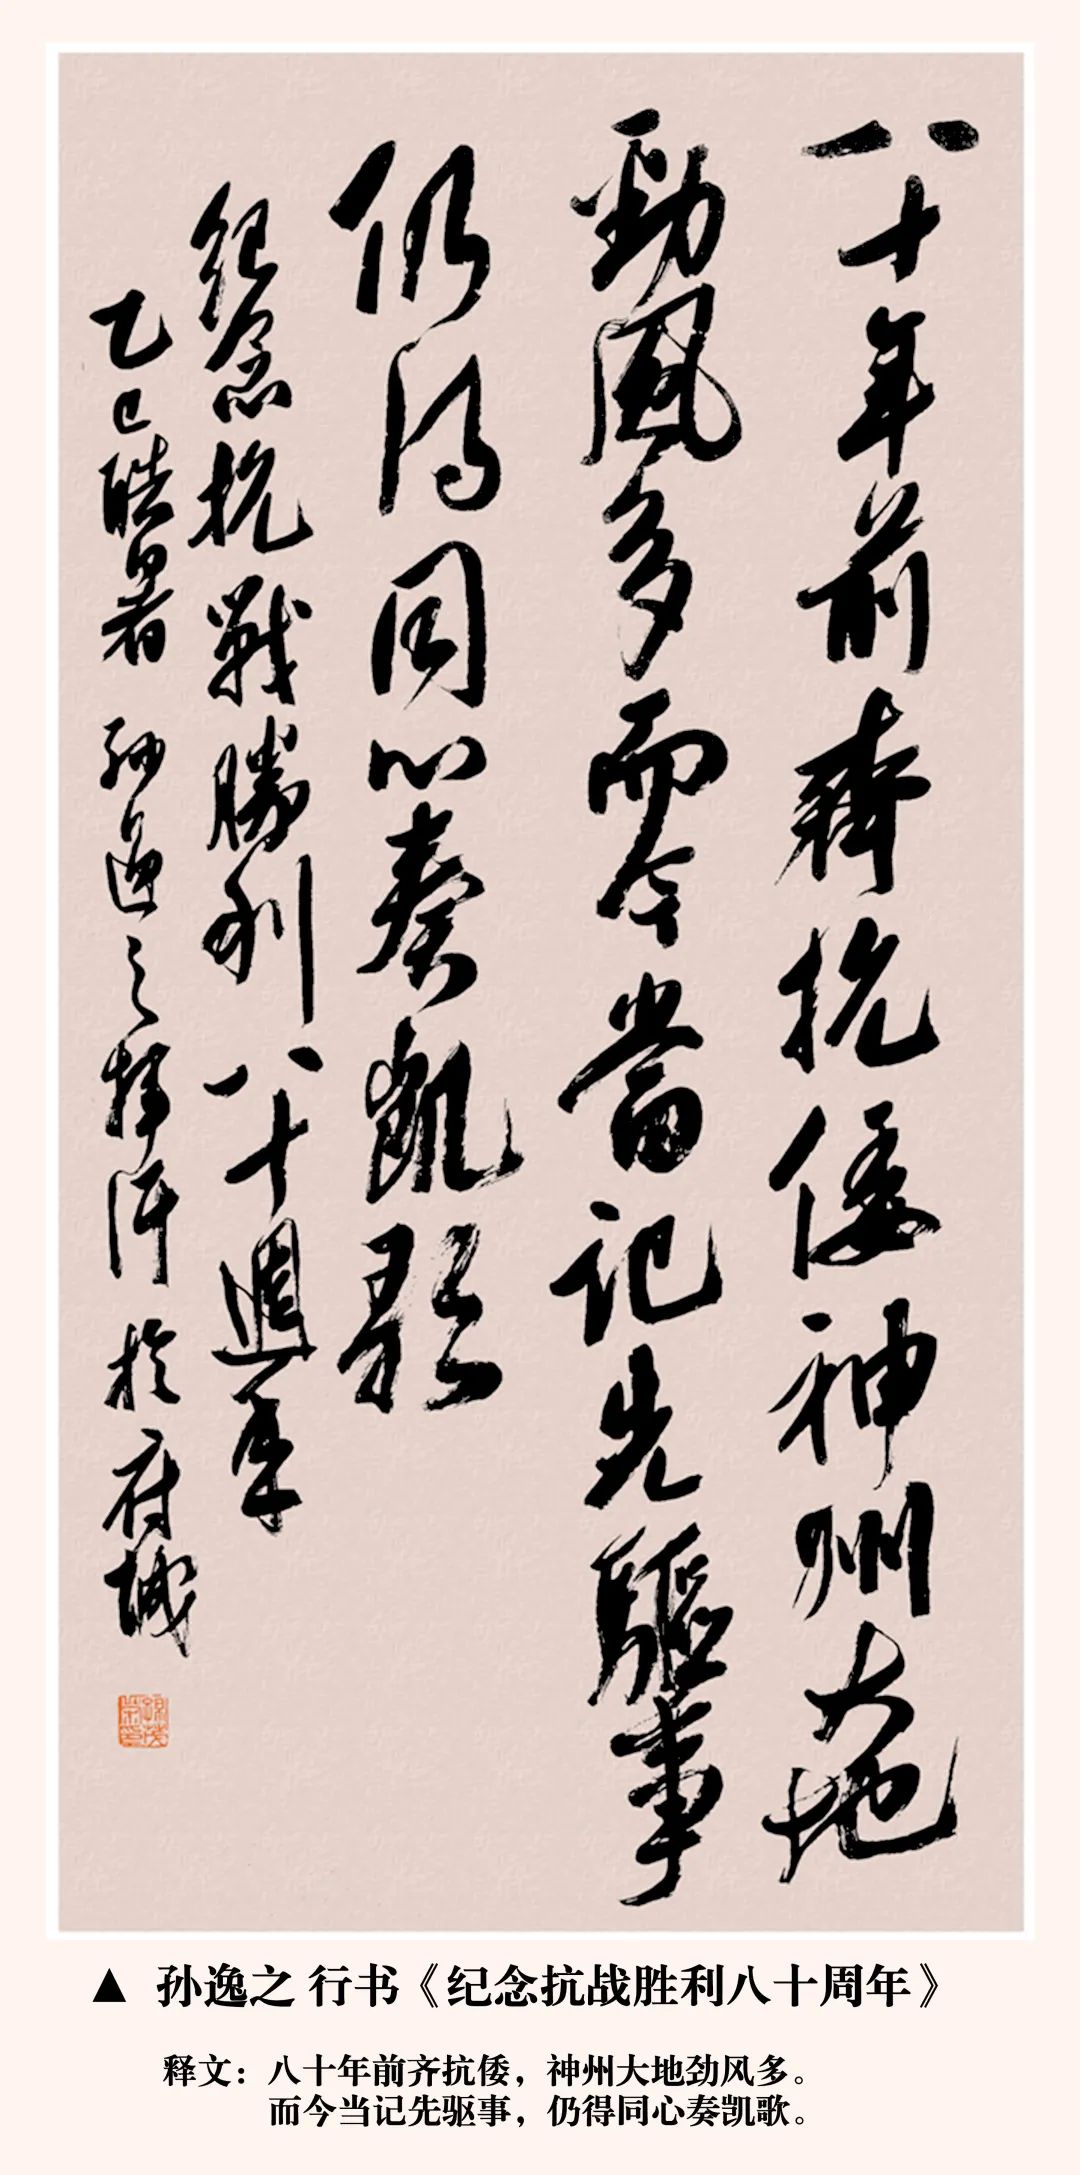 八十年前齊抗倭神州大地
勁風多而今當記先驅事
仍得同心奏凱歌
紀念抗戰勝利八十週年
乙巳酷暑 孙逸之挥汗於府城
▲ 孙逸之 行书《纪念抗战胜利八十周年》
释文：八十年前齐抗倭，神州大地劲风多。
而今当记先驱事，仍得同心奏凯歌。